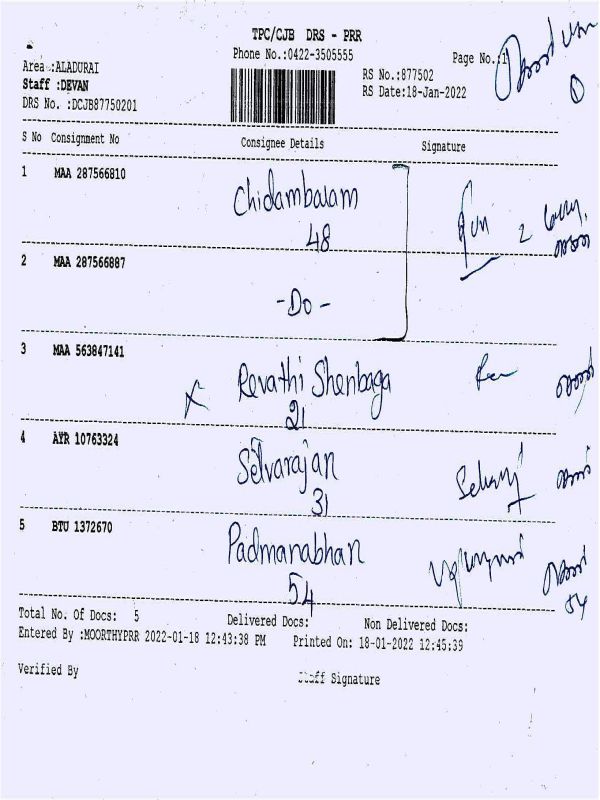 TPC/CJB DRS - PRR
Phone No.:0422-3505555
Page No.:1
Area :ALADURAI
Staff :DEVAN
DRS No. :DCJB87750201
RS No.:877502
RS Date:18-Jan-2022
S No Consignment No Consignee Details Signature
1 MAA 287566810 Chidambaram
48
2 MAA 287566887
-Do-
3 MAA 563847141
X Revathi Shenbaga
21
4 AYR 10763324
Selvarajan
31
5 BTU 1372670
Padmanabhan
54
Total No. Of Docs: 5 Delivered Docs: Non Delivered Docs:
Entered By :MOORTHYPRR 2022-01-18 12:43:38 PM Printed On: 18-01-2022 12:45:39
Verified By Staff Signature